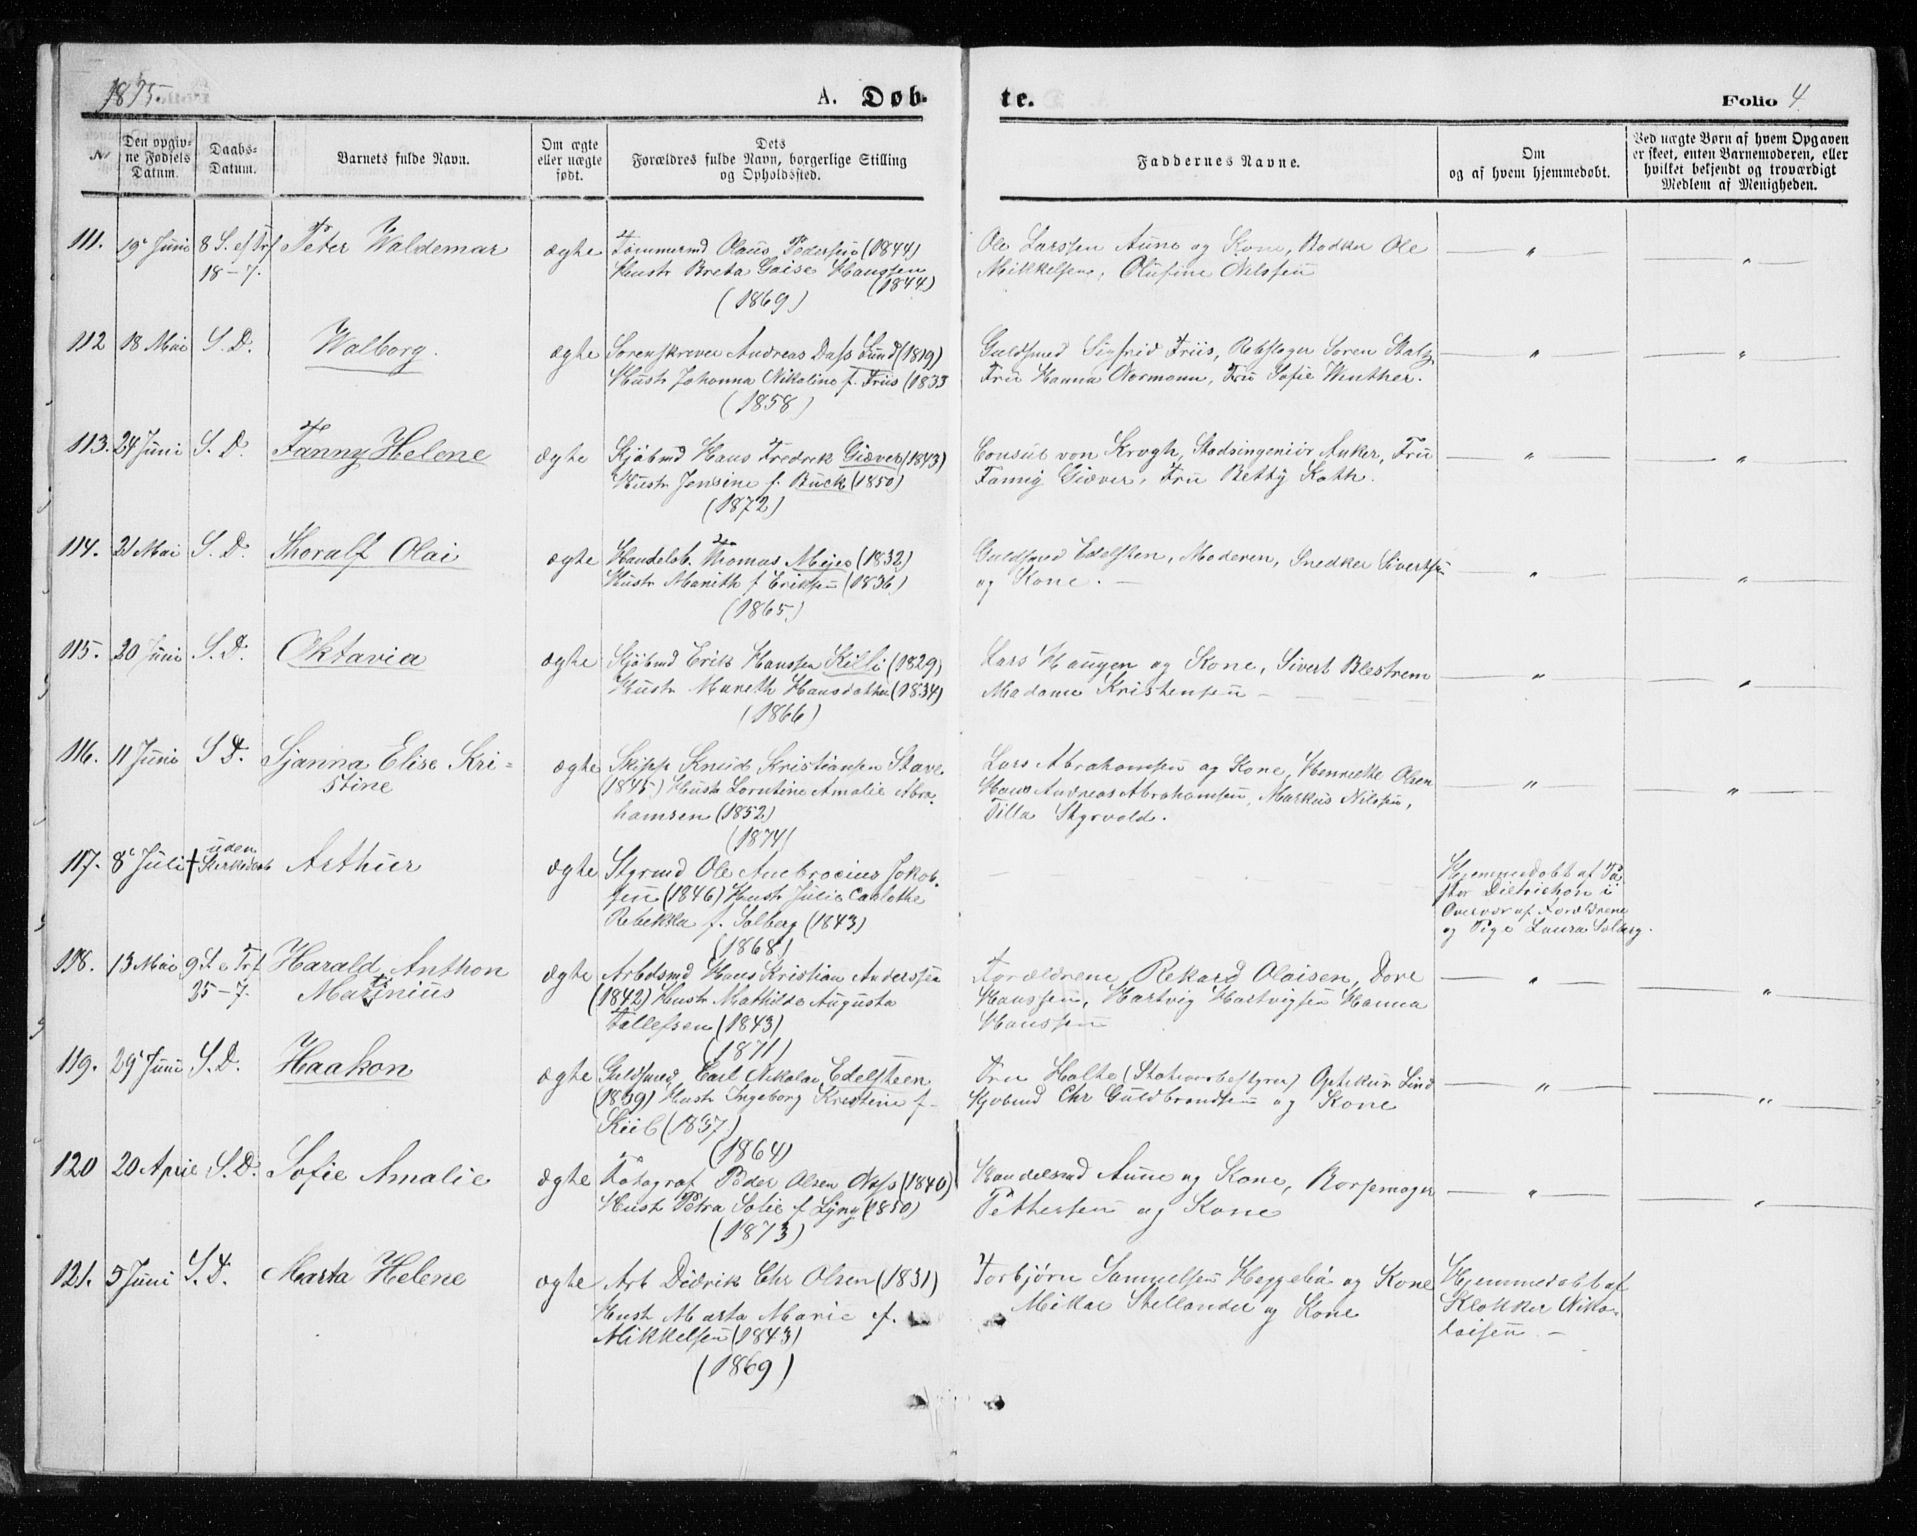 1875.
A. Døb-
te.
Folio 4.
№
Den opgiv-
ne Fødsels
Datum.
Daabs-
Datum.
Barnets fulde Navn.
Om ægte
eller uægte
født.
Dets
Forældres fulde Navn, borgerlige Stilling
og Opholdssted.
Faddernes Navne.
Om
og af hvem hjemmedøbt.
Ved uægte Børn af hvem Opgaven
er skeet, enten Barnemoderen, eller
hvilket bekjendt og troværdigt
Medlem af Menigheden.
111. 19 Juni 8 S. ef Trf
18-7.
Peter Waldemar
ægte
Tømmermd Olaus Pedersen (1844)
Hustr Breta Hanssen
(1844)
(1869)
Ole Larssen Aune og Kone, Bødker Ole
Mikkelsen, Olufine Nilssen
— " — — " —
112 18 Mai S. D. Walborg.
ægte
Sorenskrever Andreas Dass Lund (1819)
Hustr Johanna Nikoline f. Friis (1833
(1858)
Guldsmed Sigfrid Friis, Rebslager Søren
Fru Hanna Normann, Fru Sofie Winther.
— " — — " —
113. 24 Juni S. D. Fanny Helene
ægte
Kjøbmd Hans Fredrik Giæver (1843)
Hustr Jensine f. Buck (1850)
(1872)
Consul von Krogh, Stadsingeniør Anker, Fru
Fanny Giæver, Fru Betty Kath.
— " — — " —
114. 21 Mai S. D. Thoralf Olai
ægte
Handelsb. Thomas Mejer (1832)
Hustr f Eriksen (1836)
(1865)
Guldsmed Edelsten, Moderen, Snedker Sivertsen
og Kone. —
— " — — " —
115. 20 Juni S. D. Oktavia
ægte
Kjøbmd Erik Hanssen Killi (1829)
Hustr Mareth Hansdatter (1834)
(1866)
Lars Haugen og Kone, Sivert Blestrem
Madame Kristensen —
— " — — " —
116. 11 Juni S D. Sjanna Elise Kri-
stine
ægte
Skipp Knud Kristiansen Stave
(1845) Hustr Lorntine Amalie Abra-
hamsen (1852)
(1874)
Lars Abrahamsen og Kone, Henriette Olsen
Hans Andreas Abrahamsen, Markus Nilssen,
Tilla Styrvold.
— " — — " —
117. 8 Juli † uden
Kirkedaab Arthur
ægte
Styrmd Ole Ambrosius Jakob-
sen (1846) Hustr Julie Carlothe
Rebekka f. Solberg (1843)
(1868)
Hjemmedøbt af Pa-
stor Dietrichson i
Overvær af Forældrene
og Pige Laura Solberg.
118. 13 Mai 9 S e Trf
25-7.
Harald Anthon
Marinius
ægte
Arbeidsmd Hans Kristian Anderssen
(1842) Hustr Mathilde Augusta
Tollefsen (1843)
(1871)
Forældrene, Rekard Olaisen, Dore
Hanssen, Hartvig Hartvigsen Hanna
Hanssen
— " — — " —
119. 29 Juni S. D. Haakon
ægte
Guldsmed Carl Nikolai Edelsteen
(1839) Hustr Ingeborg Kristine f.
Kiil (1837)
(1864)
Fru Holte (Stationsbestyrer) Optikus Lind
Kjøbmd Chr Guldbrandsen og Kone
— " — — " —
120 20 April S. D. Sofie Amalie
ægte
Fotograf Peder Olsen Aass (1840)
Hustr Petra Sofie f Lyng (1850)
(1873)
Handelsmd Aune og Kone, Korpsmager
Pettersen og Kone
— " — — " —
121. 5 Juni S. D. Marta Helene
ægte
Arb Didrik Chr Olsen (1831)
Hustr Marta Marie f.
Mikkelsen (1843)
(1869)
Torbjørn Samuelsen Heggeliá og Kone
Mikal Stellander og Kone
Hjemmedøbt af
Klokker Niko-
laisen. —